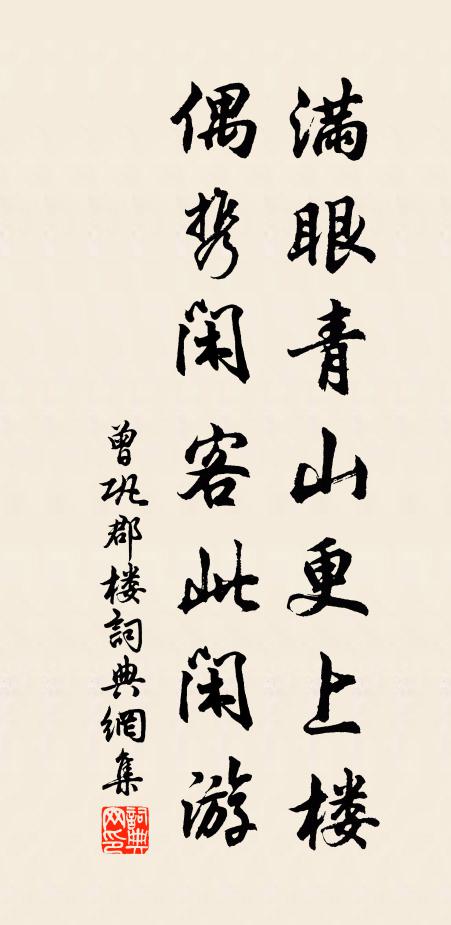 满眼青山更上楼
偶携闲客此闲游
曾巩郡楼詞典網集
詞典网印